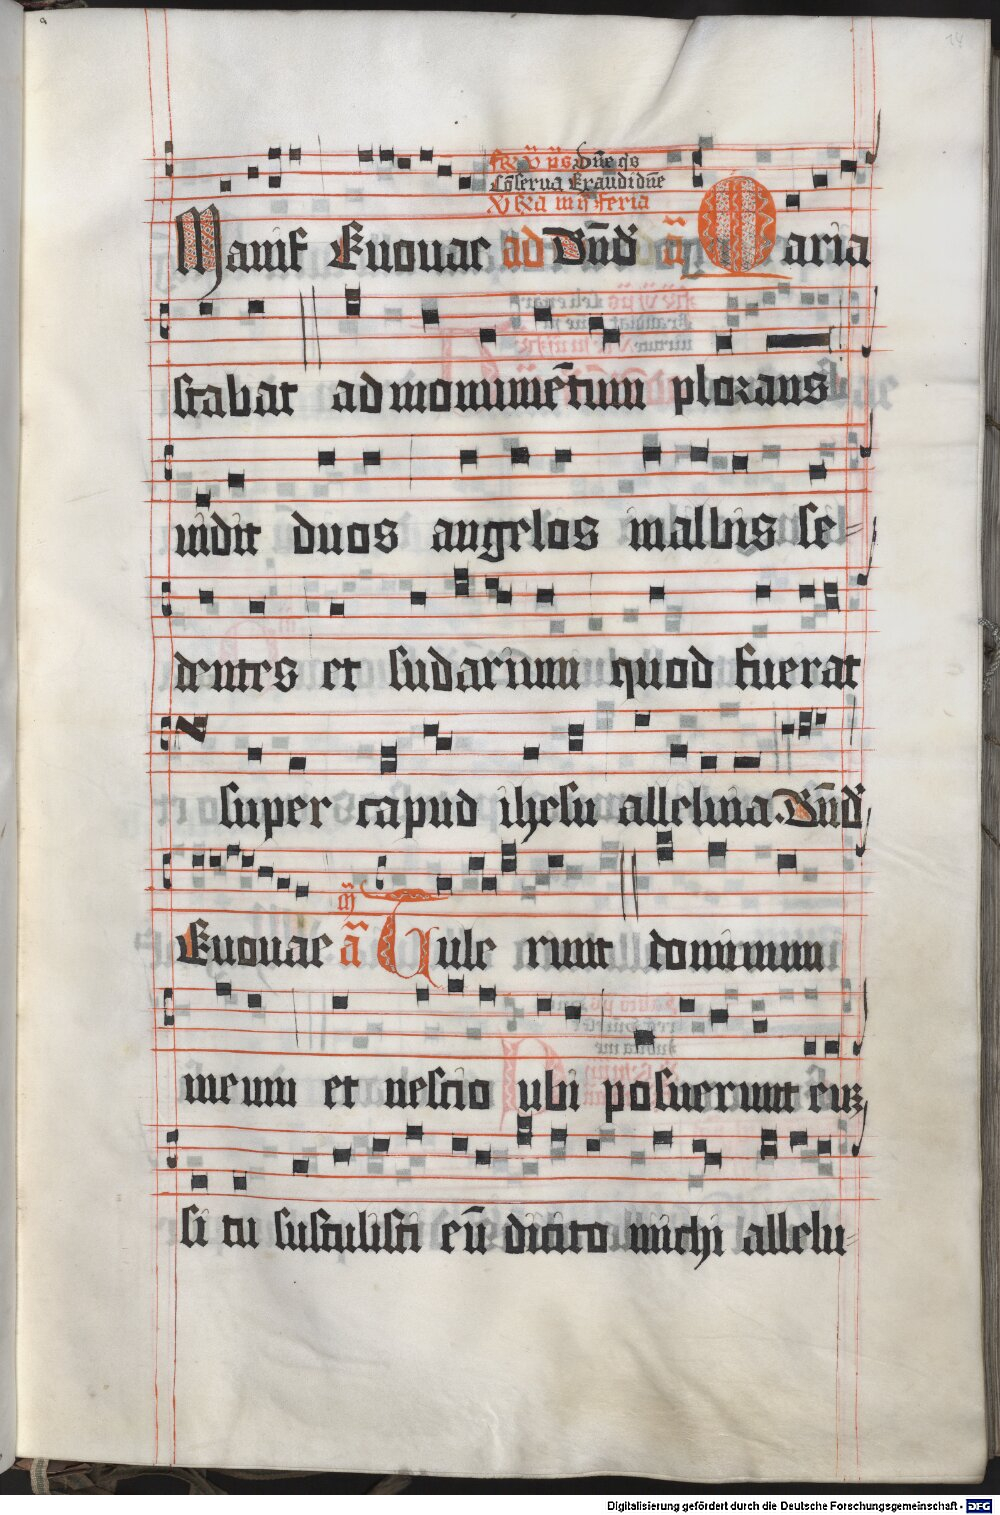 Dñe q̃s
Cõserua Exaudi dñe
Manif Euouae ad Bñd ã Maria
stabat ad monumẽtum plorans
uidit duos angelos in albis se=
dentes et sudarium quod fuerat
super capud ihesu alleluia Bñd
Euouae ã Tule runt dominum
meum et nescio ubi posuerunt euz
si tu sustulisti eũ dicito michi allelu=
Digitalisierung gefördert durch die Deutsche Forschungsgemeinschaft - DFG